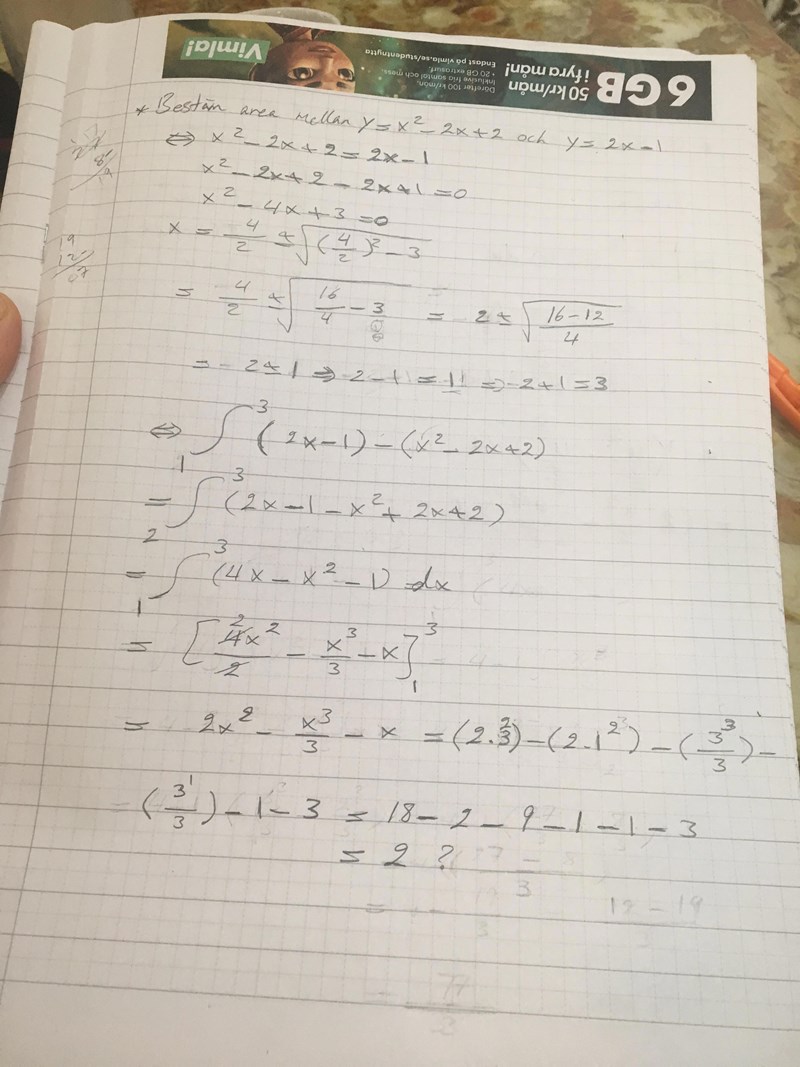 6 GB
50 kr/mån
i fyra mån!
Därefter 100 kr/mån.
Inklusive fria samtal och mess.
+ 20 GB extrasurf.
Endast på vimla.se/studentnytta
Vimla!
* Bestäm area mellan y = x² - 2x + 2 och y = 2x - 1
⇔ x² - 2x + 2 = 2x - 1
x² - 2x + 2 - 2x + 1 = 0
x² - 4x + 3 = 0
x = 4/2 ± √((4/2)² - 3)
= 4/2 ± √(16/4 - 3) = 2 ± √((16 - 12)/4)
= - 2 ± 1 ⇒ 2 - 1 = 1 ⇒ 2 + 1 = 3
⇔ ∫₁³ (2x - 1) - (x² - 2x + 2)
= ∫₂³ (2x - 1 - x² + 2x + 2)
= ∫₁³ (4x - x² - 1) dx
= [4x²/2 - x³/3 - x]₁³
= 2x² - x³/3 - x = (2·3²) - (2·1²) - (3³/3) -
(3¹/3) - 1 - 3 = 18 - 2 - 9 - 1 - 1 - 3
= 2 ?